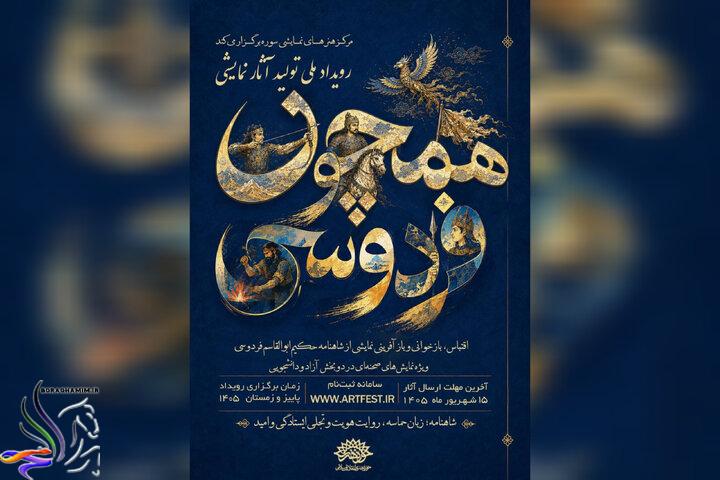 مرکز هنرهای نمایشی سوره برگزاری کند
رویداد ملی تولید آثار نمایشی
همچون
فردوسی
اقتباس، بازخوانی و بازآفرینی نمایشی از شاهنامه حکیم ابوالقاسم فردوسی
ویژه نمایش‌های صحنه‌ای در دو بخش آزاد و دانشجویی
آخرین مهلت ارسال آثار
۱۵ شهریور ماه ۱۴۰۵
سامانه ثبت‌نام
WWW.ARTFEST.IR
زمان برگزاری رویداد
پاییز و زمستان ۱۴۰۵
شاهنامه؛ زبان حماسه، روایت هویت و تجلی ایستادگی و امید
BORAGHAMIM.IR